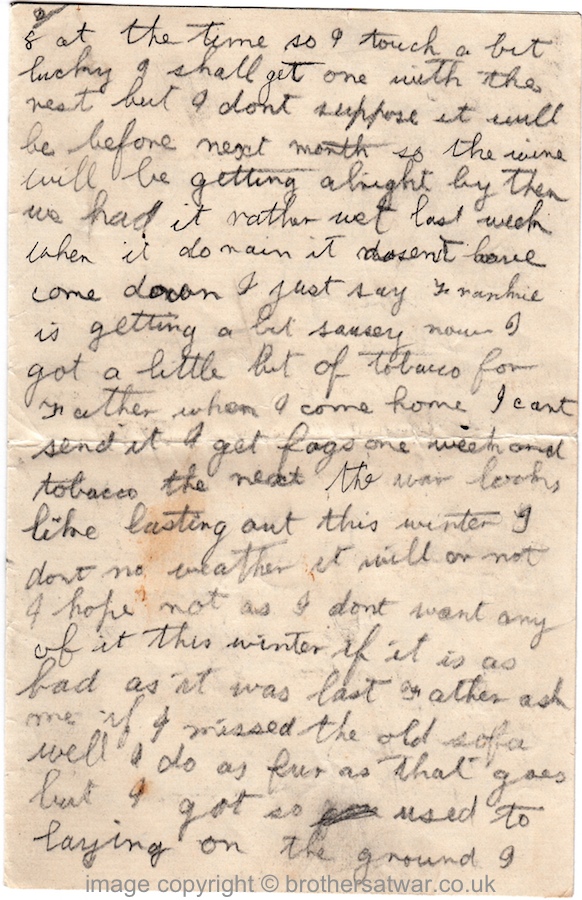 2
8 at the time so I touch a bit
lucky I shall get one with the
rest but I dont suppose it will
be before next month so the wine
will be getting alright by then
we had it rather wet last week
when it do rain it dosent have
come down I just say Frankie
is getting a bit saucey now I
got a little bit of tobacco for
Father when I come home I cant
send it I get fags one week and
tobacco the next the war looks
like lasting out this winter I
dont no weather it will or not
I hope not as I dont want any
of it this winter if it is as
bad as it was last Father ask
me if I missed the old sofa
well I do as fur as that goes
but I got so used to
laying on the ground I
image copyright © brothersatwar.co.uk